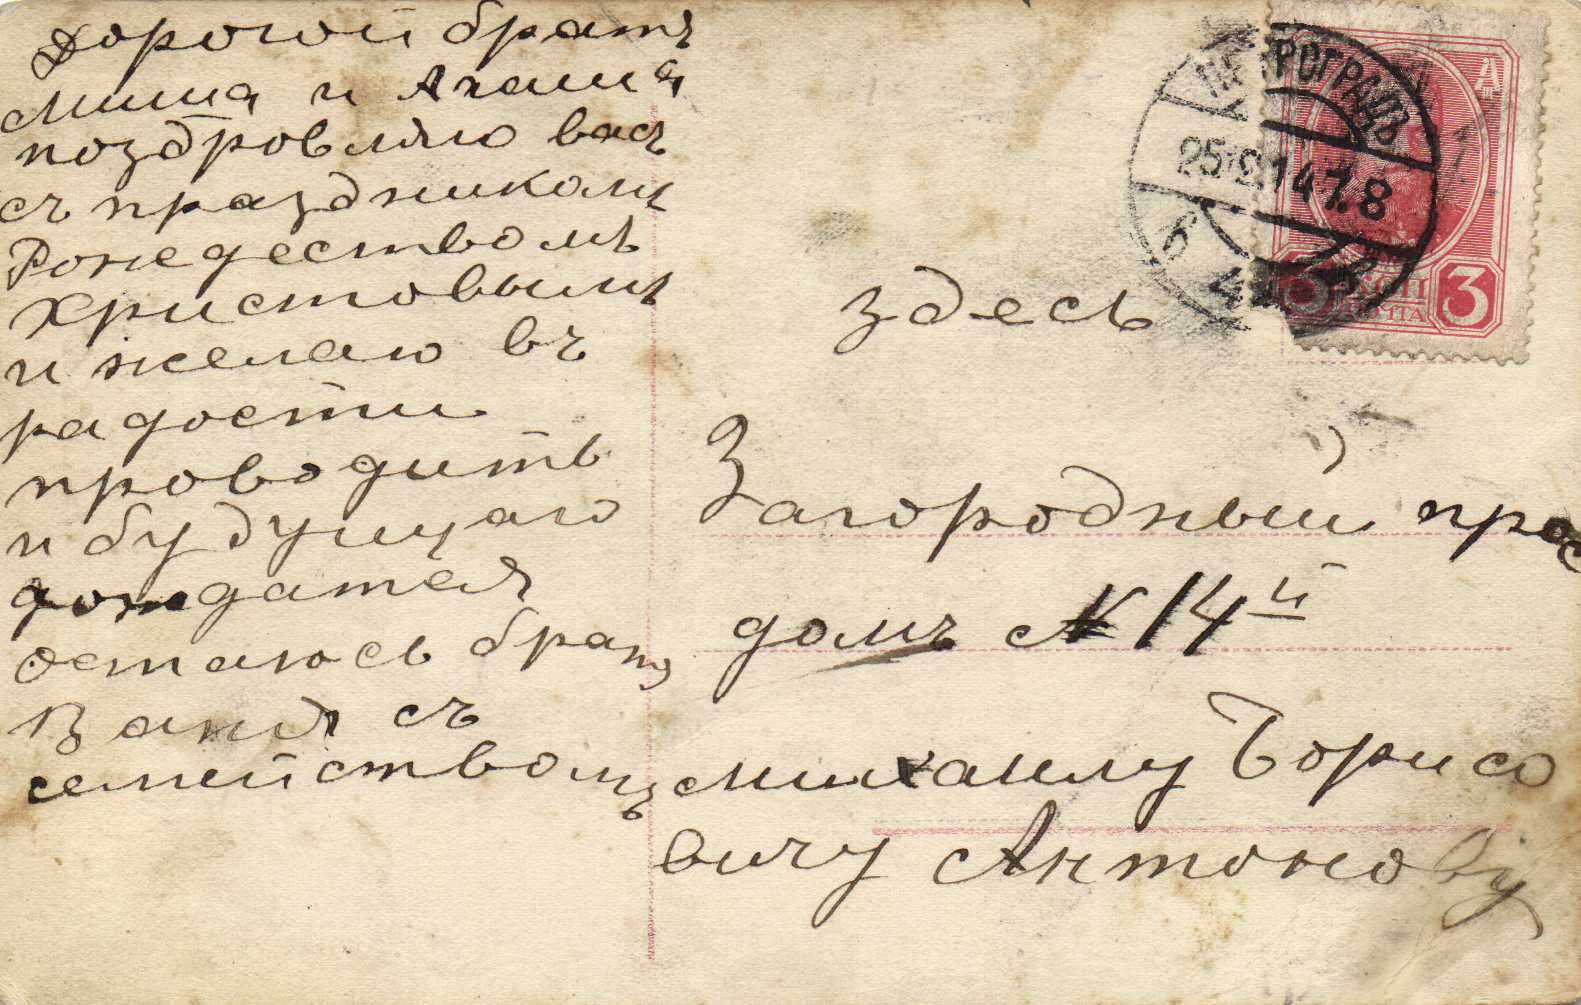 Дорогой братъ
Миша и Агаша
поздровляю васъ
съ праздникомъ
Рождествомъ
Христовымъ
и желаю въ
радости
проводить
и будущаго
дождатся
остаюсь братъ
Ваня съ
семействомъ
ПЕТРОГРАДЪ
25 12 14 7. 8
3 КОП
3
здесь
Загородный прос
домъ № 14й
Михаилу Борисо
вичу Антонову